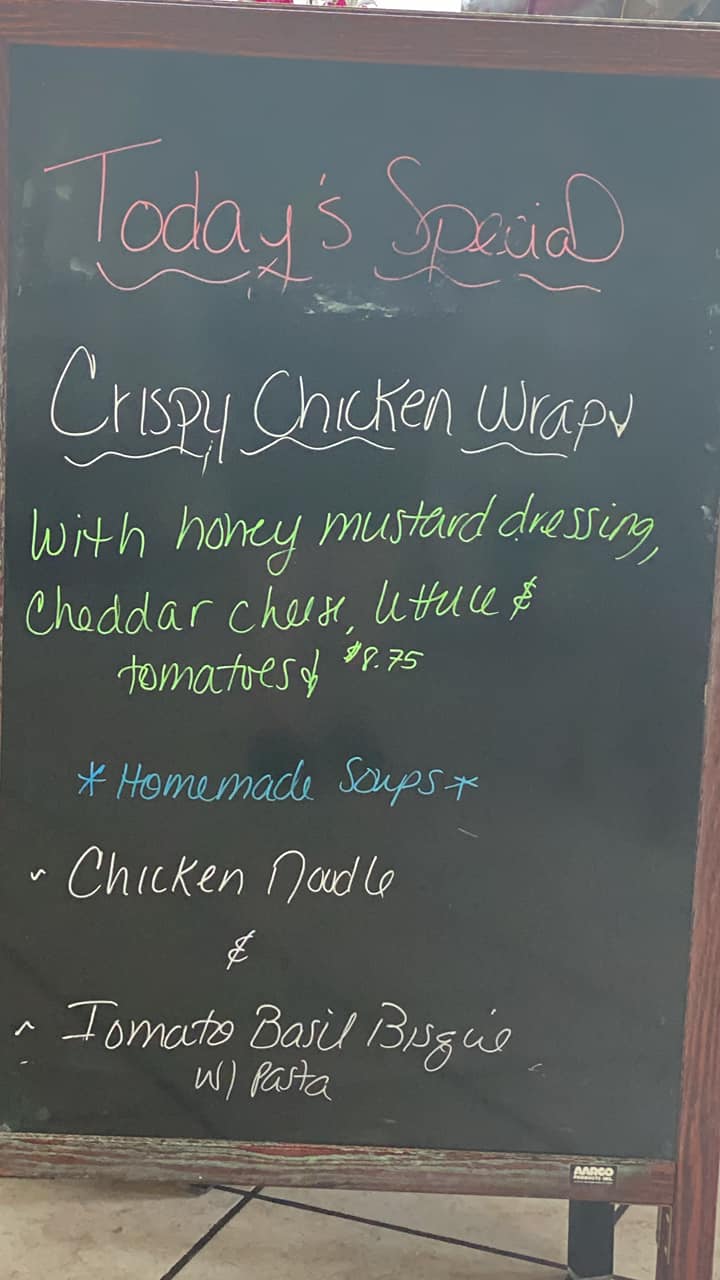 Today's Special
Crispy Chicken Wrap
With honey mustard dressing,
Cheddar cheese, lettuce &
tomatoes $8.75
*Homemade Soups*
Chicken Noodle
&
Tomato Basil Bisque
W/ Pasta
AARCO
PRODUCTS INC.